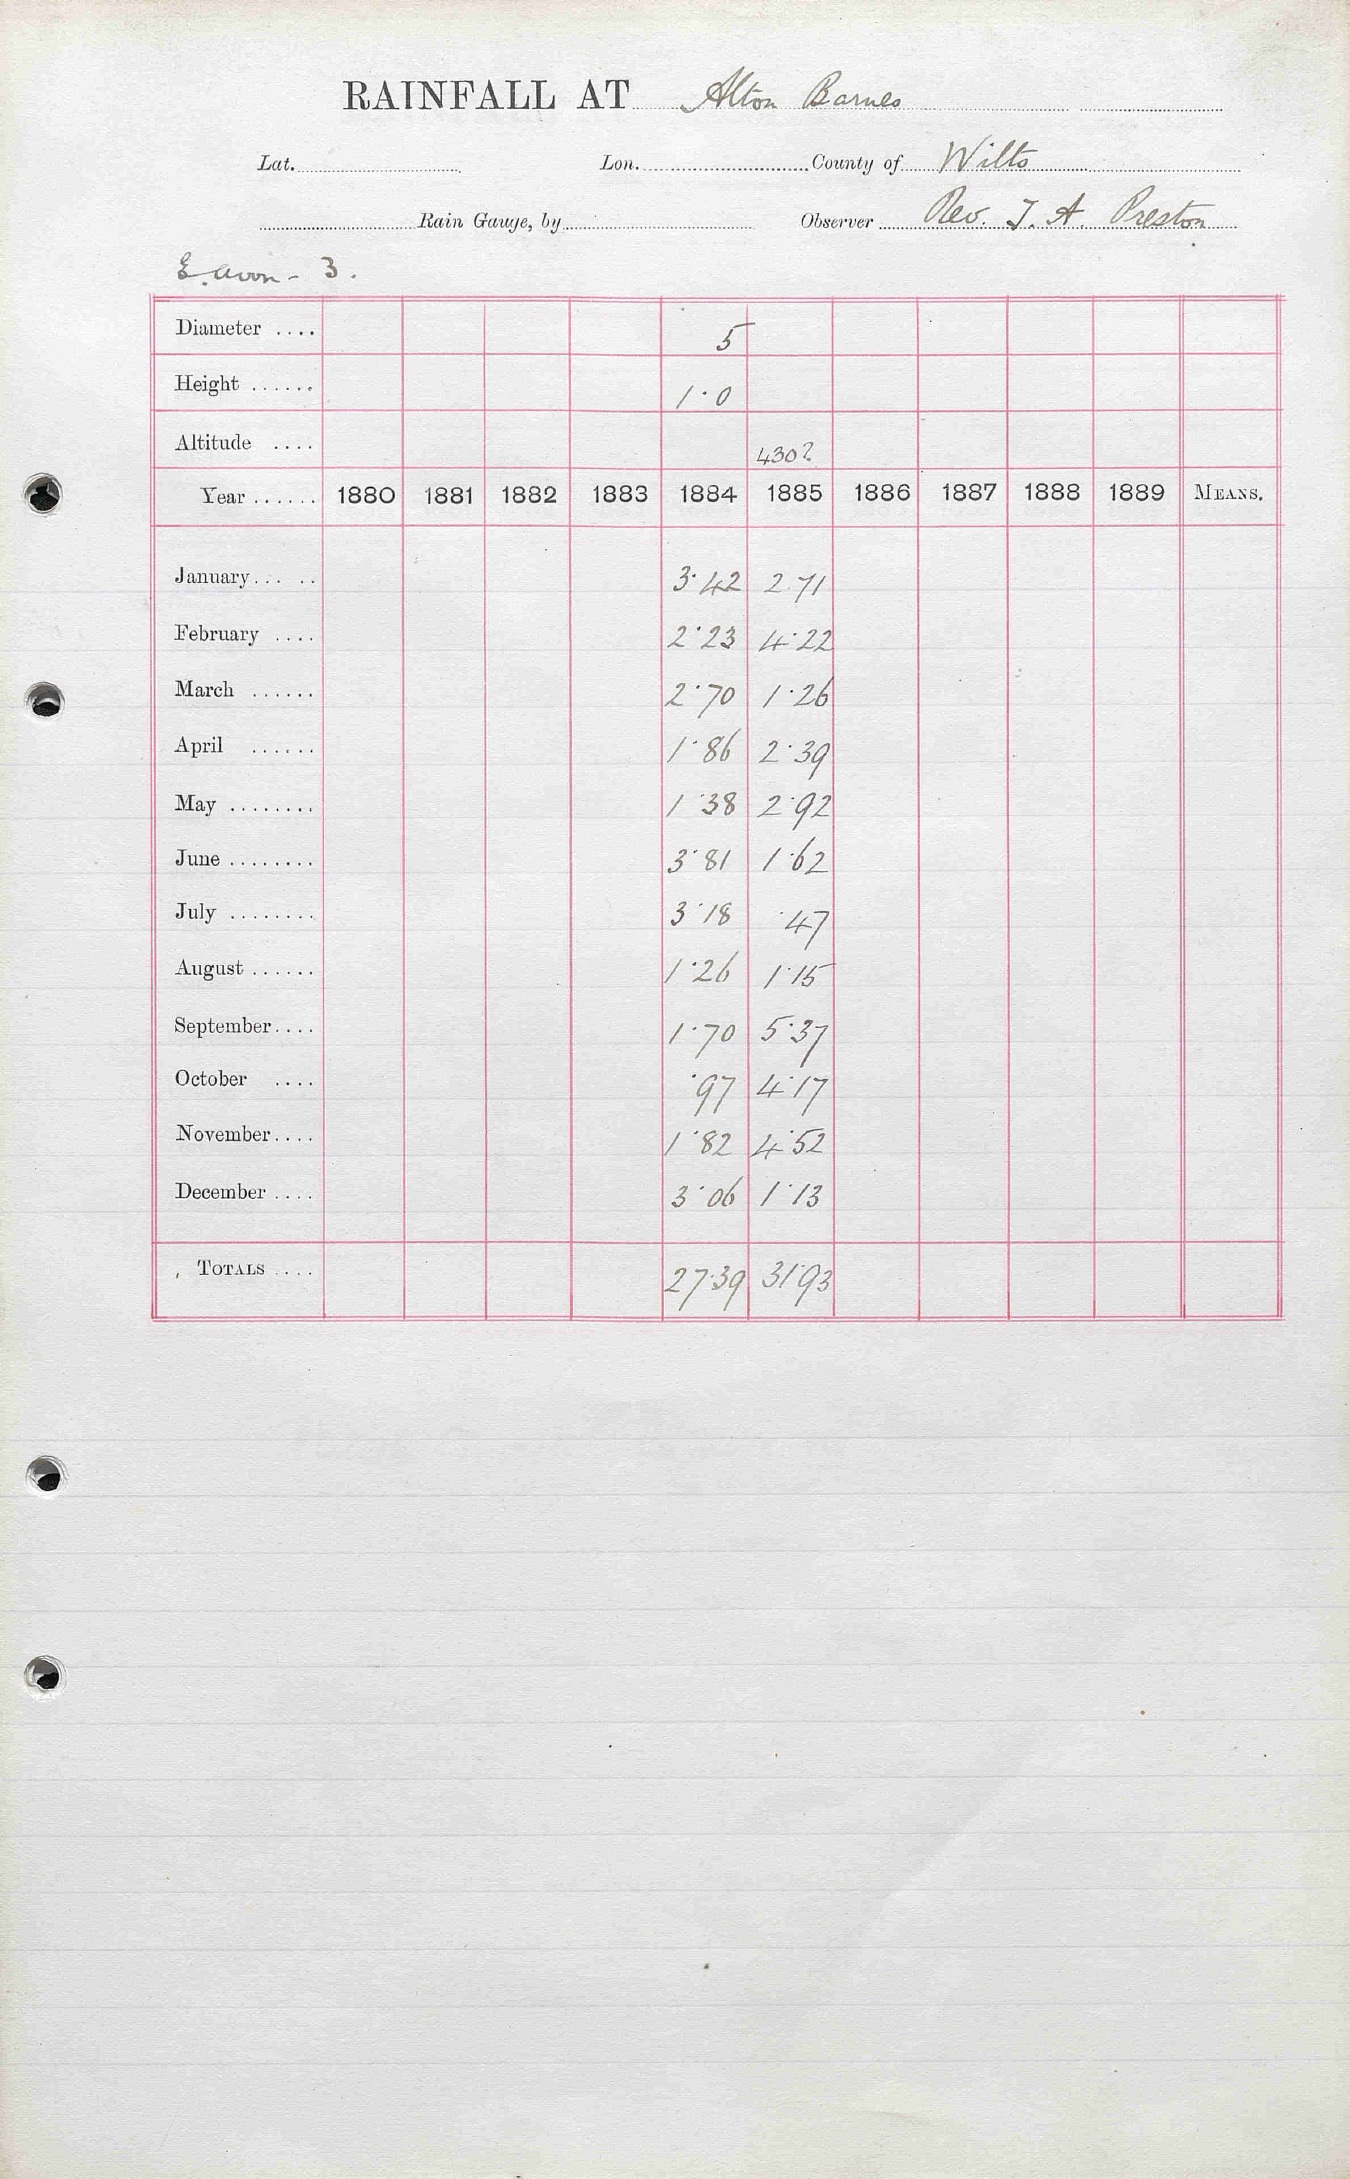 RAINFALL AT Alton Barnes
Lat. Lon. County of Wilts
Rain Gauge, by Observer Rev. T. A. Preston
E. Avon - 3.
Diameter .... 5
Height ...... 1·0
Altitude .... 430?
Year ...... 1880 1881 1882 1883 1884 1885 1886 1887 1888 1889 MEANS.
January... .. 3·42 2.71
February .... 2·23 4·22
March ...... 2·70 1·26
April ...... 1·86 2·39
May ........ 1·38 2·92
June ........ 3·81 1·62
July ........ 3·18 ·47
August ...... 1·26 1·15
September.... 1·70 5·37
October .... ·97 4·17
November.... 1·82 4·52
December .... 3·06 1·13
TOTALS .... 27·39 31·93